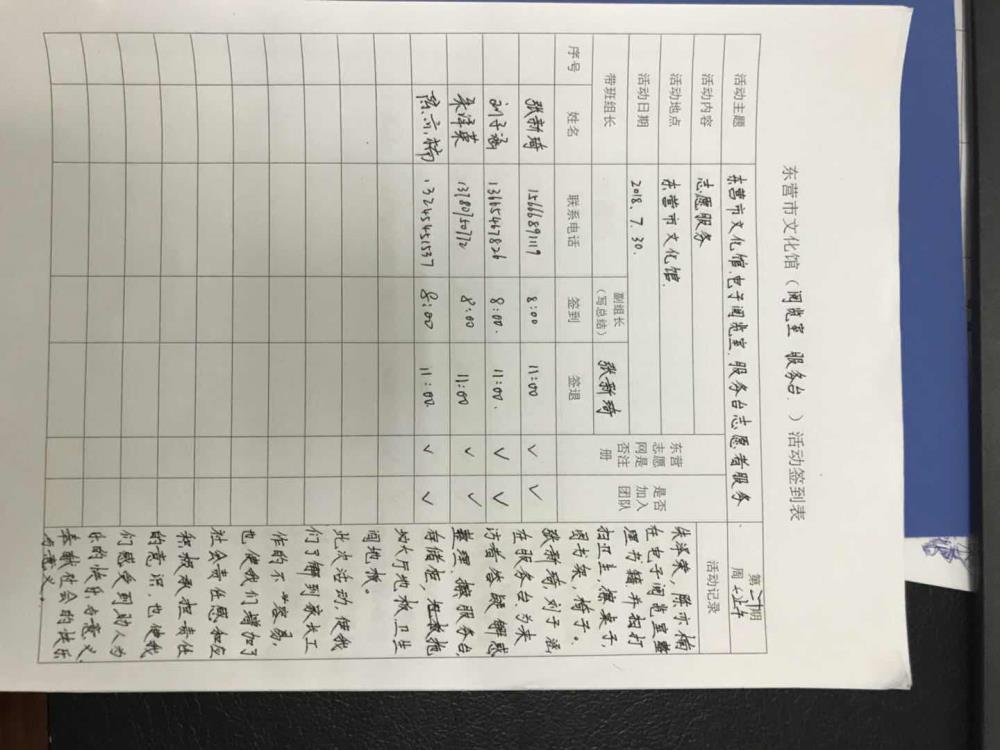 东营市文化馆（阅览室 服务台.）活动签到表
活动主题 东营市文化馆.电子阅览室.服务台志愿者服务.
活动内容 志愿服务
活动地点 东营市文化馆.
活动日期 2018.7.30.
带班组长 副组长（写总结） 张新琦
序号 姓名 联系电话 签到 签退 东营志愿网是否注册 是否加入团队
张新琦 15666891119 8:00 11:00 ✓ ✓
刘子涵 13665467826 8:00. 11:00. ✓ ✓
13780750772 8:00 11:00 ✓ ✓
陈亦楠 13245451537 8:00 11:00 ✓ ✓
第 期
周
活动记录
陈亦楠
在电子阅览室整
理书籍并扫打
扫卫生,擦桌子,
图书架,椅子。
张新琦,刘子涵
在服务台,为来
访者答疑解惑
整理,擦服务台,
存储柜, 拖
地大厅地板,卫生
间地板。
此次活动,使我
们了解到家长工
作的不容易,
也使我们增加了
社会责任感和应
积极承担责任
的意识,也使我
们感受到助人为
乐的快乐与意义,
奉献社会的快乐
与意义。